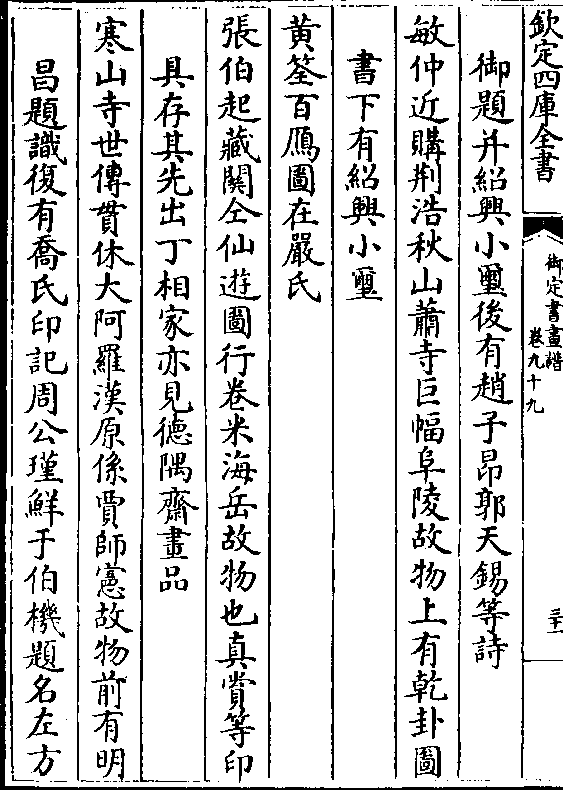 欽定四庫全書
御定書畫譜
卷九十九
三十一
御題并紹興小璽後有趙子昂郭天錫等詩
敏仲近購荆浩秋山蕭寺巨幅阜陵故物上有乾卦圖
書下有紹興小璽
黄筌百鴈圖在嚴氏
張伯起藏關仝仙遊圖行卷米海岳故物也真賞等印
具存其先出丁相家亦見德隅齋畫品
寒山寺世傳貫休大阿羅漢原係賈師憲故物前有明
昌題識復有喬氏印記周公瑾鮮于伯機題名左方